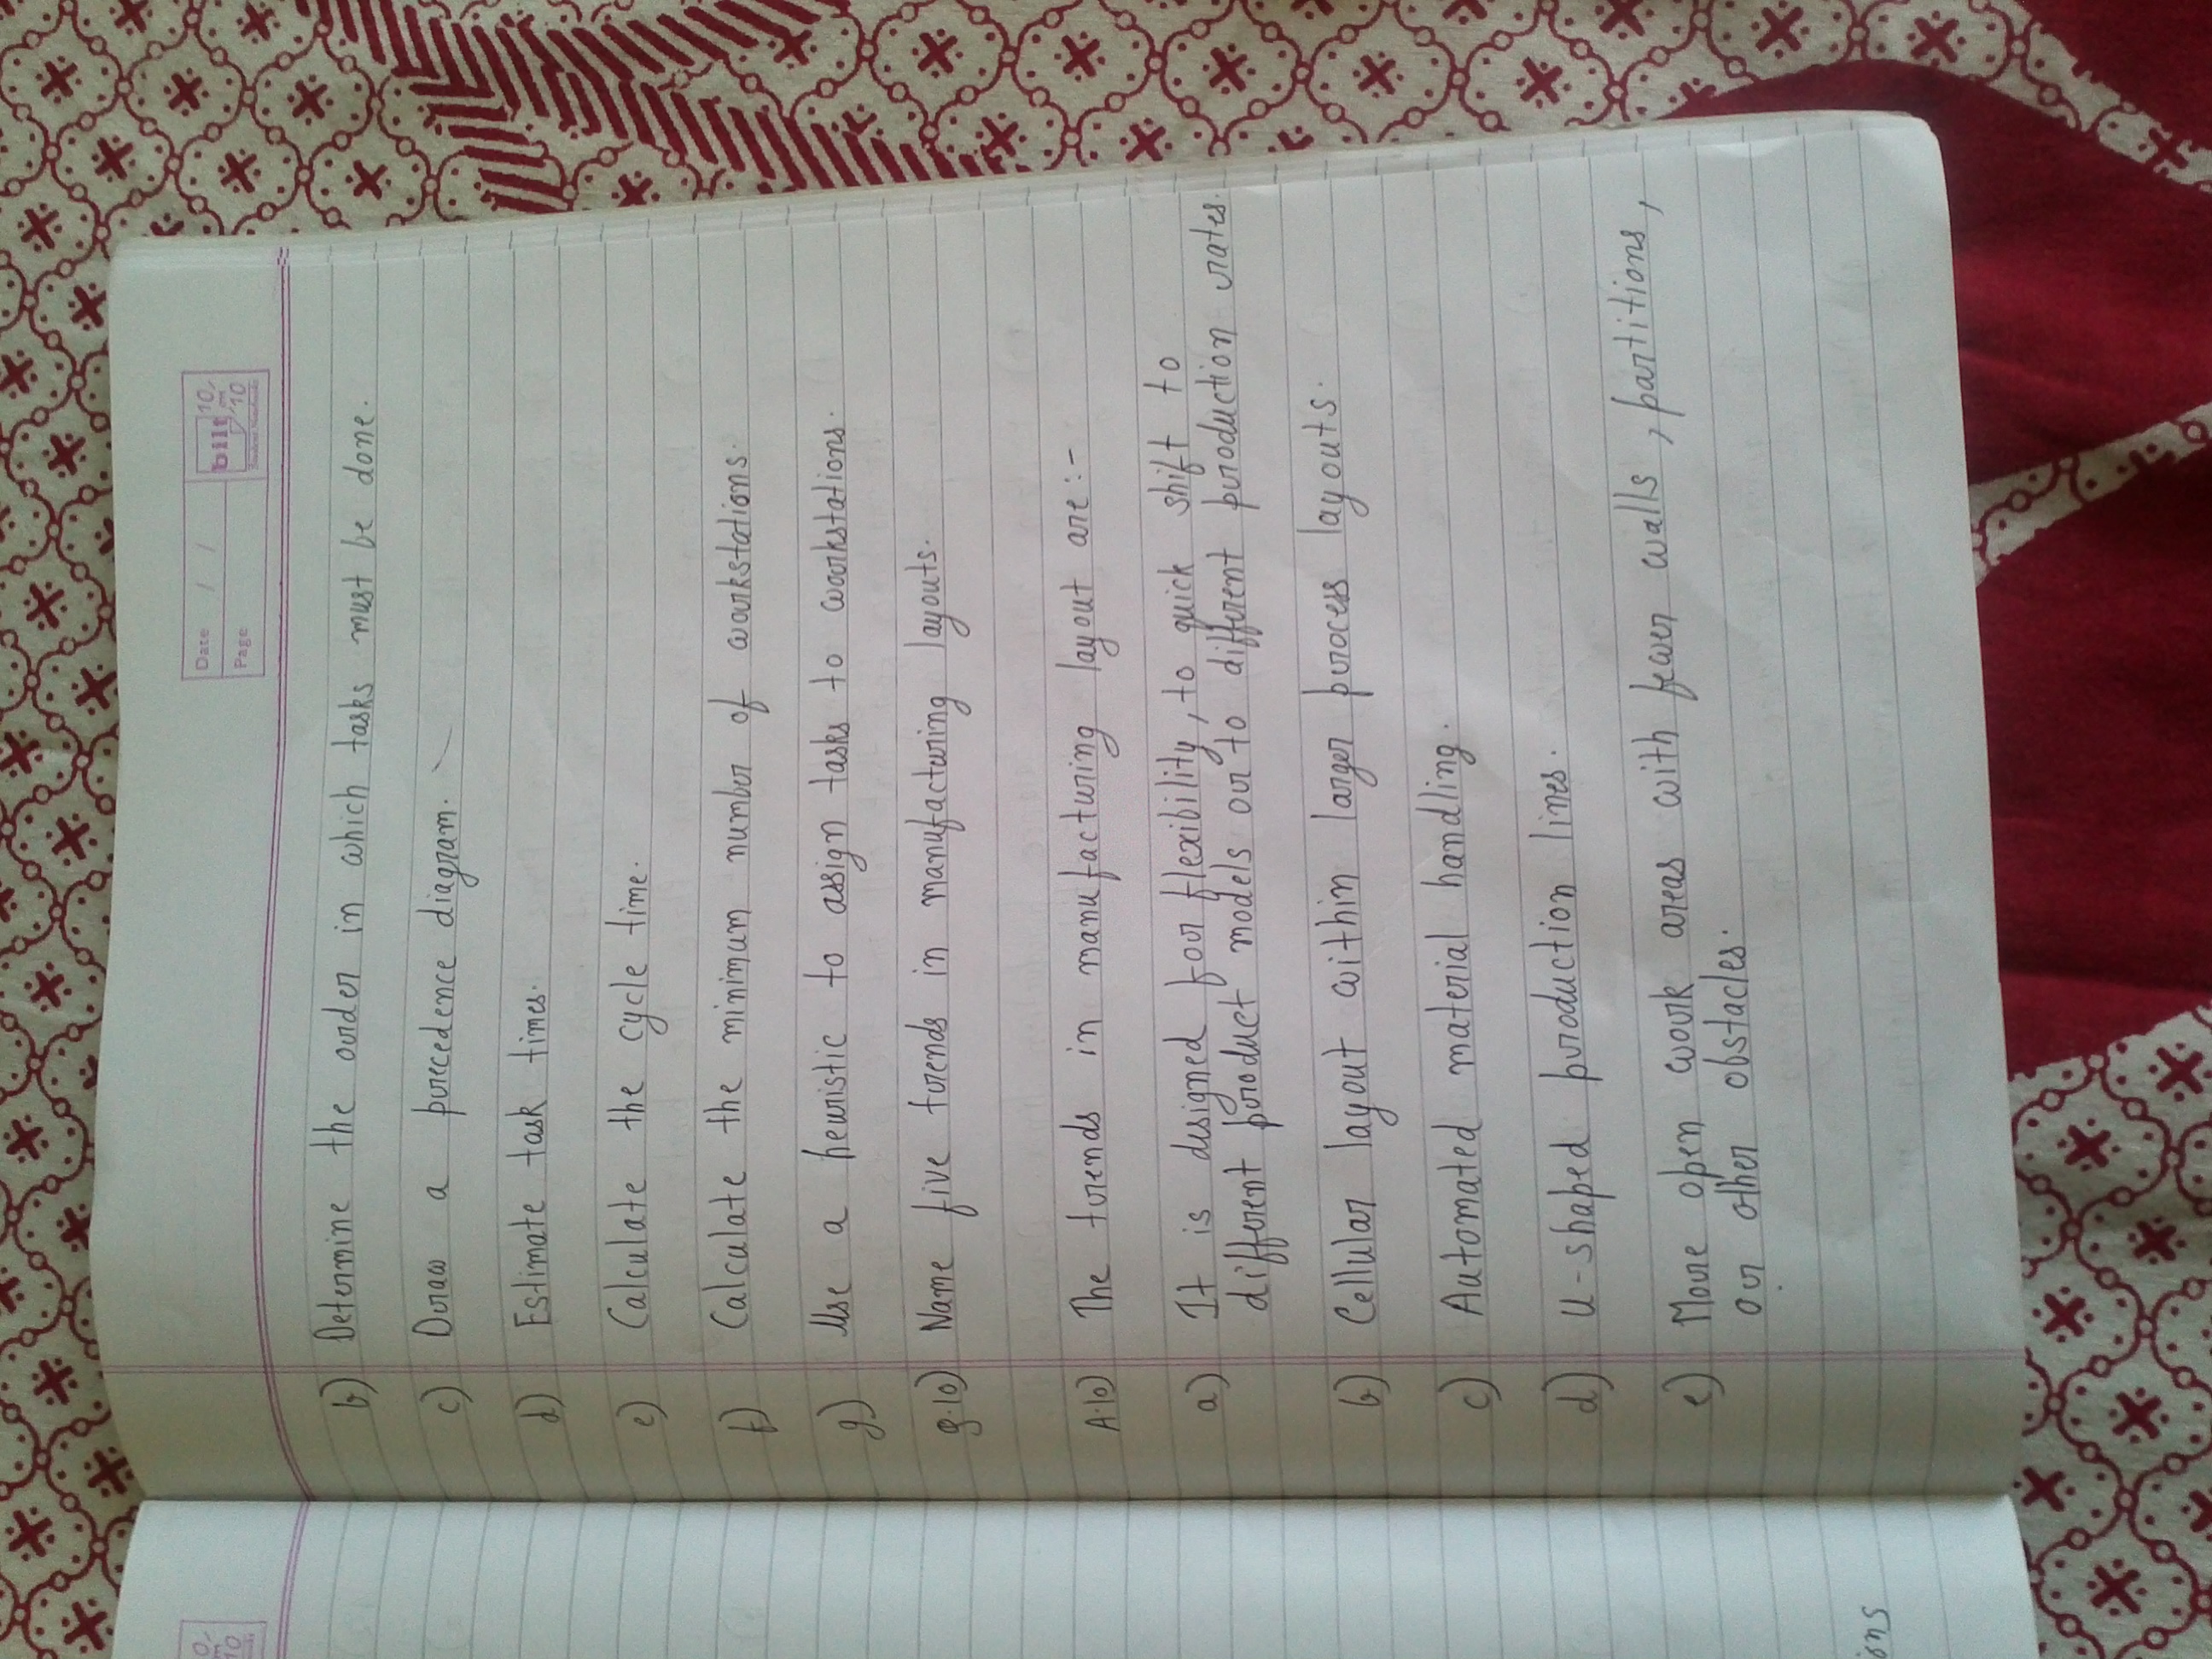 Date / /
Page
bilt 10 on 10
b) Determine the order in which tasks must be done.
c) Draw a precedence diagram.
d) Estimate task times.
e) Calculate the cycle time.
f) Calculate the minimum number of workstations.
g) Use a heuristic to assign tasks to workstations.
Q.10) Name five trends in manufacturing layouts.
A.10) The trends in manufacturing layout are:-
a) It is designed for flexibility, to quick shift to
different product models or to different production rates.
b) Cellular layout within larger process layouts.
c) Automated material handling.
d) U-shaped production lines.
e) More open work areas with fewer walls, partitions,
or other obstacles.